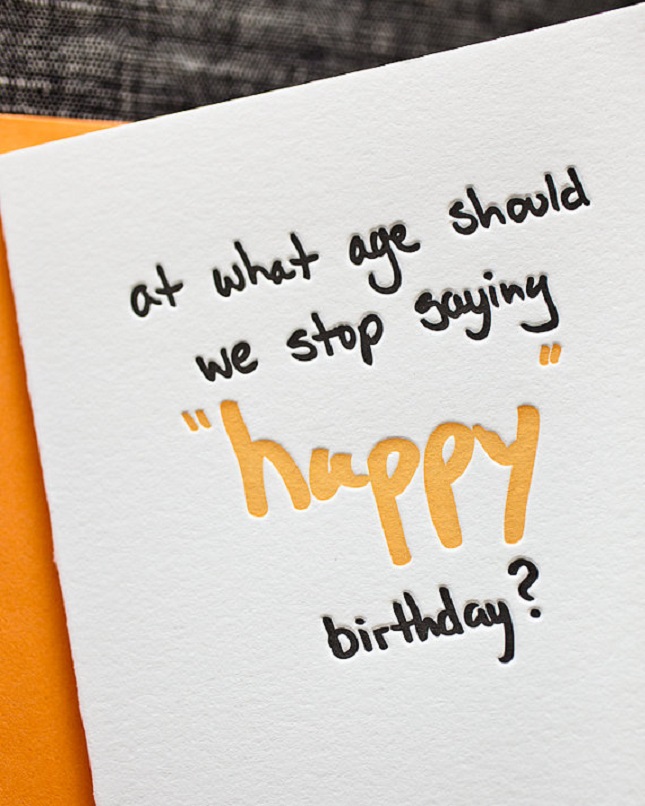 at what age should
we stop saying
"happy"
birthday?